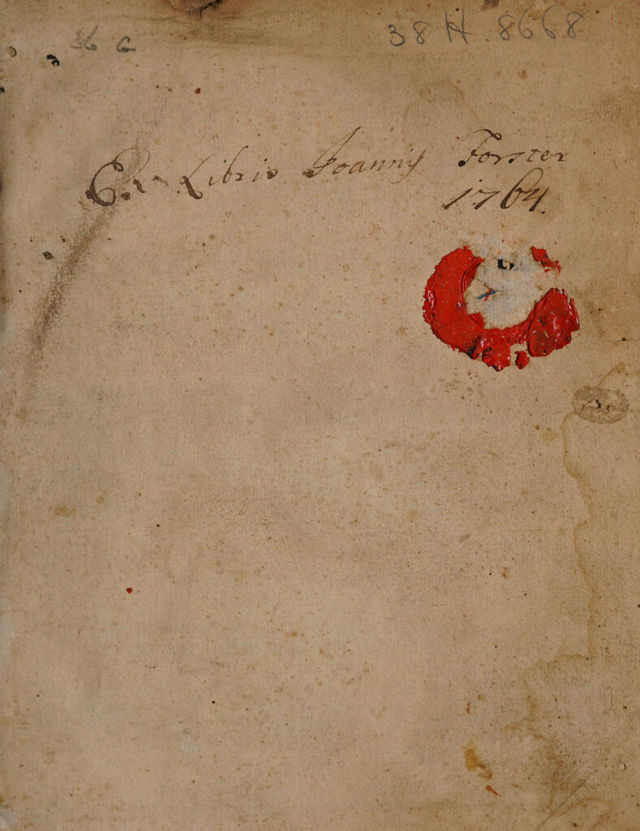 38 H. 8668
36 G
Ex Libris Joannis Forster
1764.